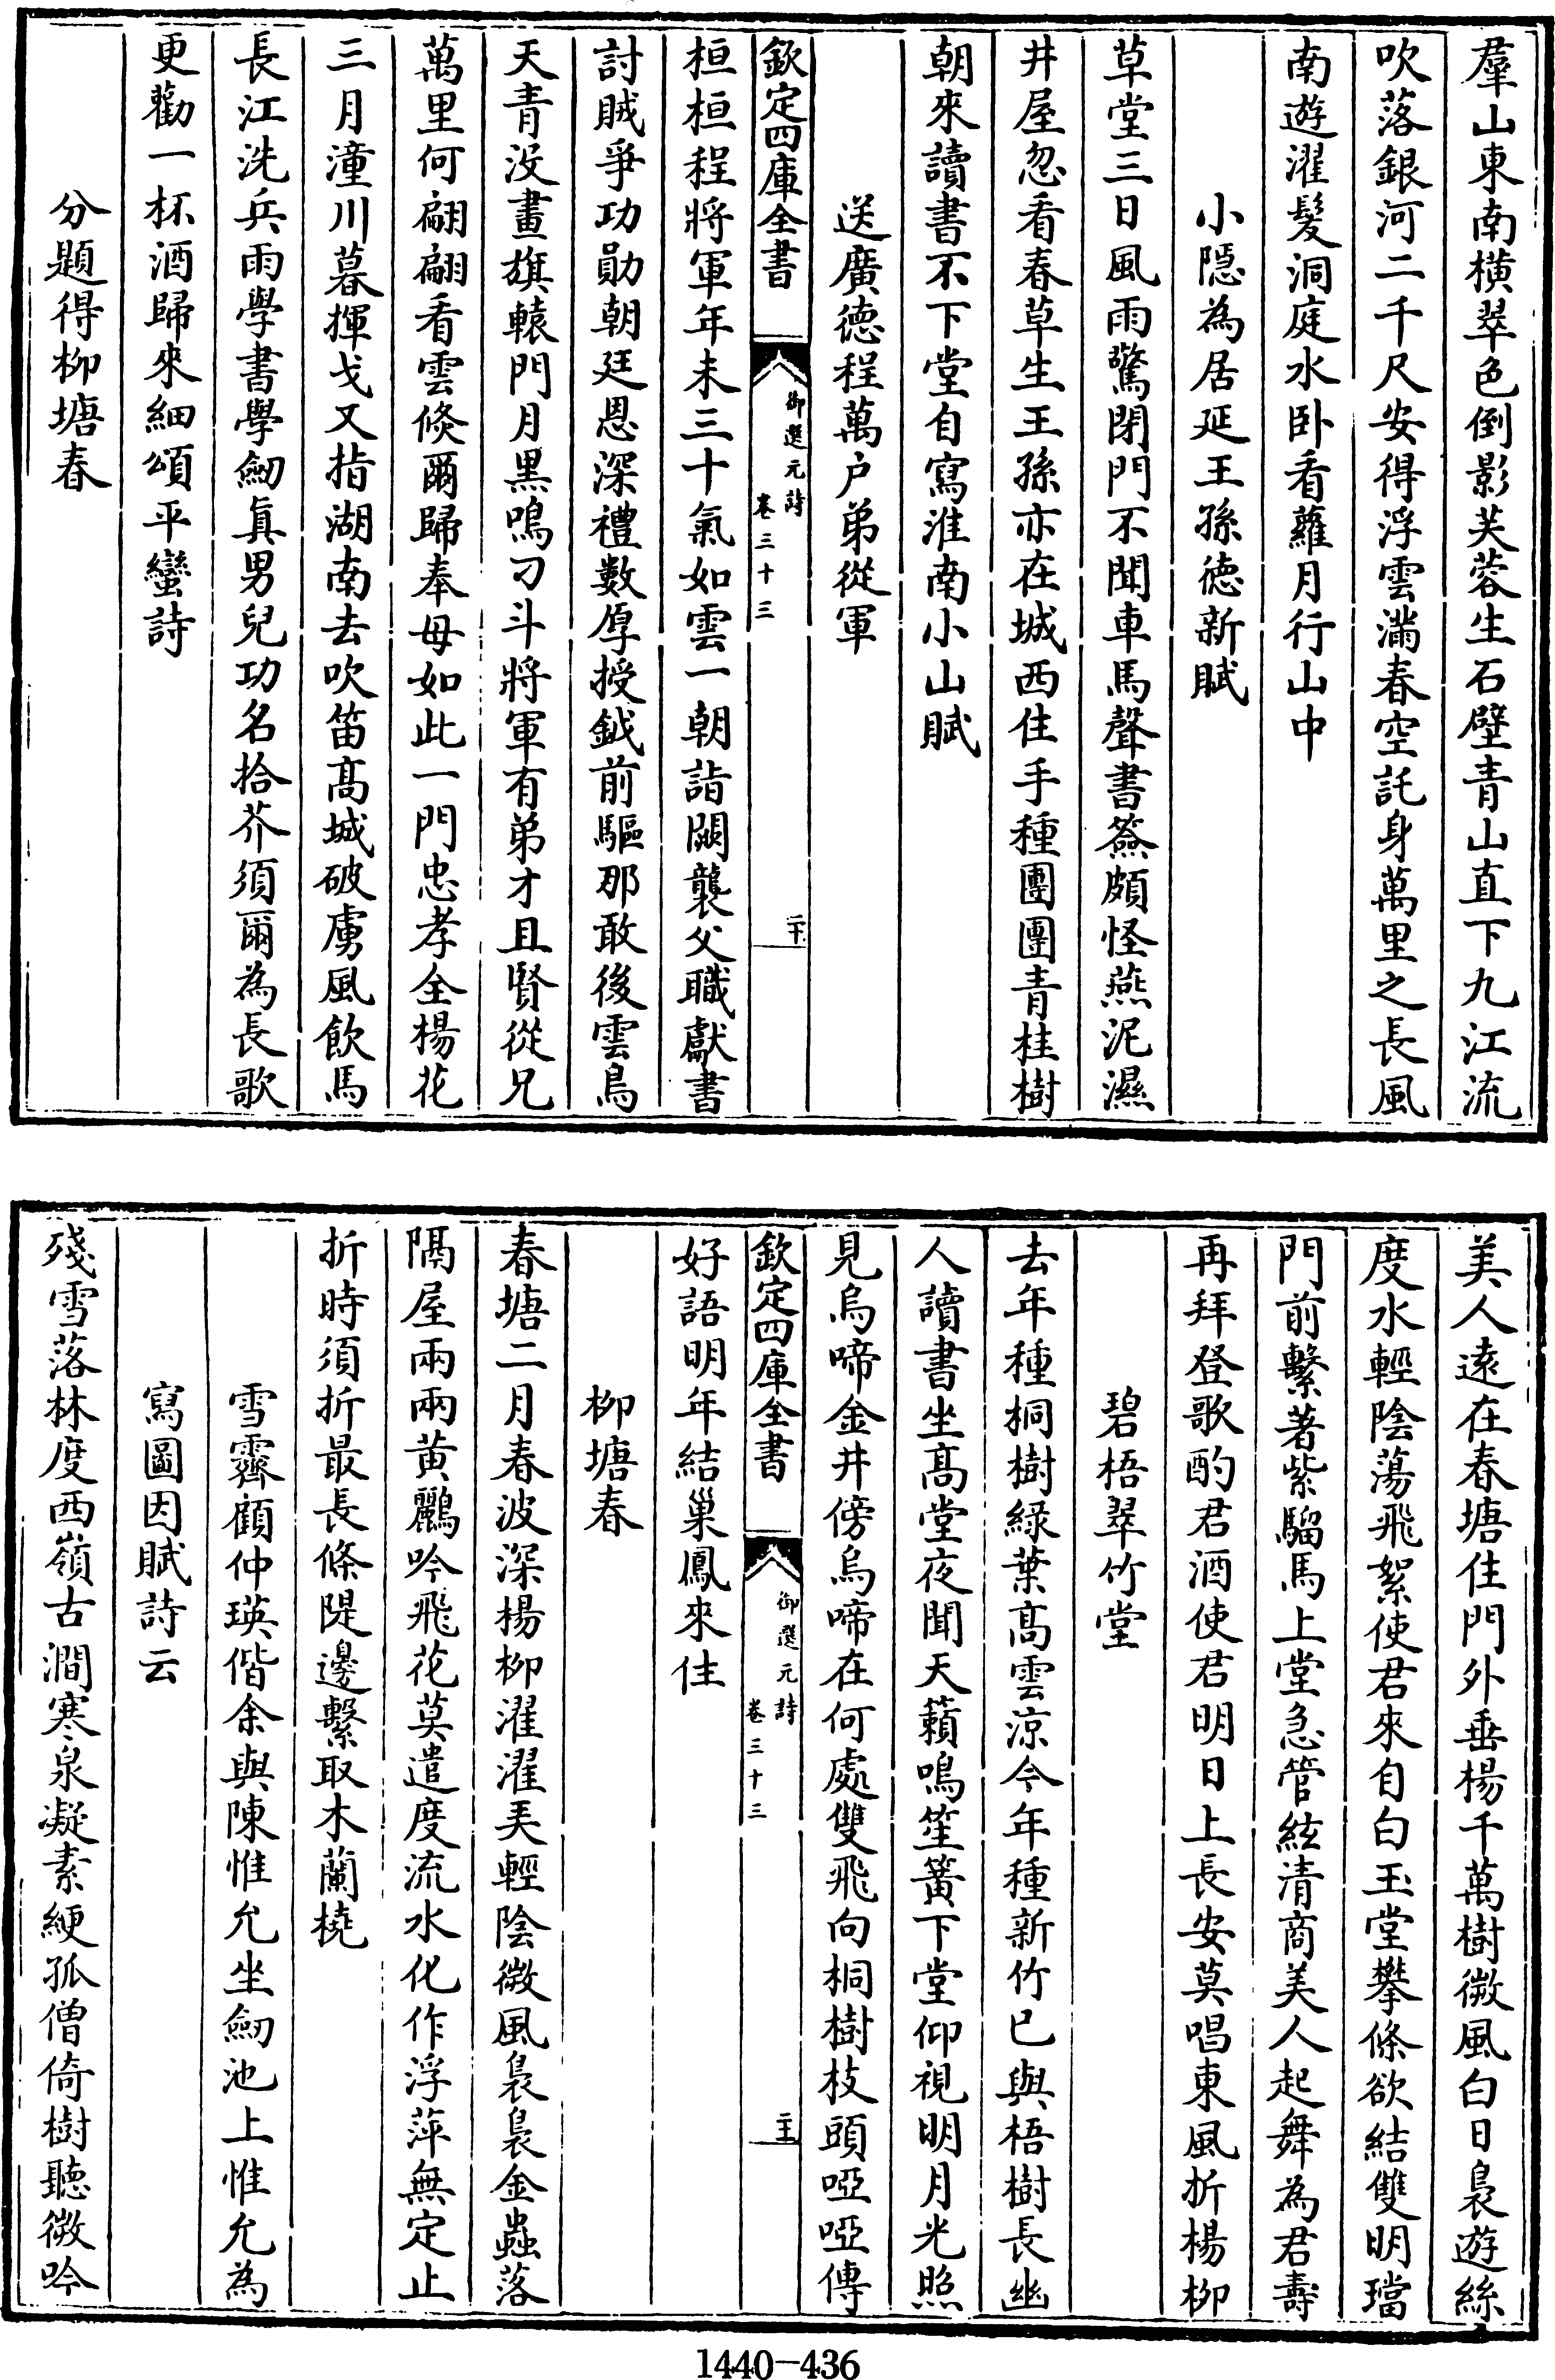 羣山東南横翠色倒影芙蓉生石壁青山直下九江流
吹落銀河二千尺安得浮雲滿春空託身萬里之長風
南遊濯髮洞庭水卧看蘿月行山中
小隱為居延王孫德新賦
草堂三日風雨驚閉門不聞車馬聲書簽頗怪燕泥濕
井屋忽看春草生王孫亦在城西住手種團團青桂樹
朝來讀書不下堂自寫淮南小山賦
送廣德程萬户弟從軍
欽定四庫全書
御選元詩
卷三十三
二十
桓桓程將軍年未三十氣如雲一朝詣闕襲父職獻書
討賊爭功勛朝廷恩深禮數厚授鉞前驅那敢後雲鳥
天青没畫旗轅門月黑鳴刁斗將軍有弟才且賢從兄
萬里何翩翩看雲倏爾歸奉母如此一門忠孝全楊花
三月潼川暮揮戈又指湖南去吹笛髙城破虜風飲馬
長江洗兵雨學書學劒真男兒功名拾芥須爾為長歌
更勸一杯酒歸來細頌平蠻詩
分題得柳塘春
美人遠在春塘住門外垂楊千萬樹微風白日裊遊絲
度水輕陰蕩飛絮使君來自白玉堂攀條欲結雙明璫
門前繫著紫騮馬上堂急管絃清商美人起舞為君壽
再拜登歌酌君酒使君明日上長安莫唱東風折楊柳
碧梧翠竹堂
去年種桐樹緑葉髙雲凉今年種新竹已與梧樹長幽
人讀書坐髙堂夜聞天籟鳴笙簧下堂仰視明月光照
見烏啼金井傍烏啼在何處雙飛向桐樹枝頭啞啞傳
欽定四庫全書
御選元詩
卷三十三
二十一
好語明年結巢鳳來住
柳塘春
春塘二月春波深楊柳濯濯美輕陰微風裊裊金蟲落
隔屋兩兩黄鸝吟飛花莫遣度流水化作浮萍無定止
折時須折最長條隄邊繫取木蘭橈
雪霽顧仲瑛偕余與陳惟允坐劒池上惟允為
寫圖因賦詩云
殘雪落林度西嶺古澗寒泉凝素綆孤僧倚樹聽微吟
1440-436